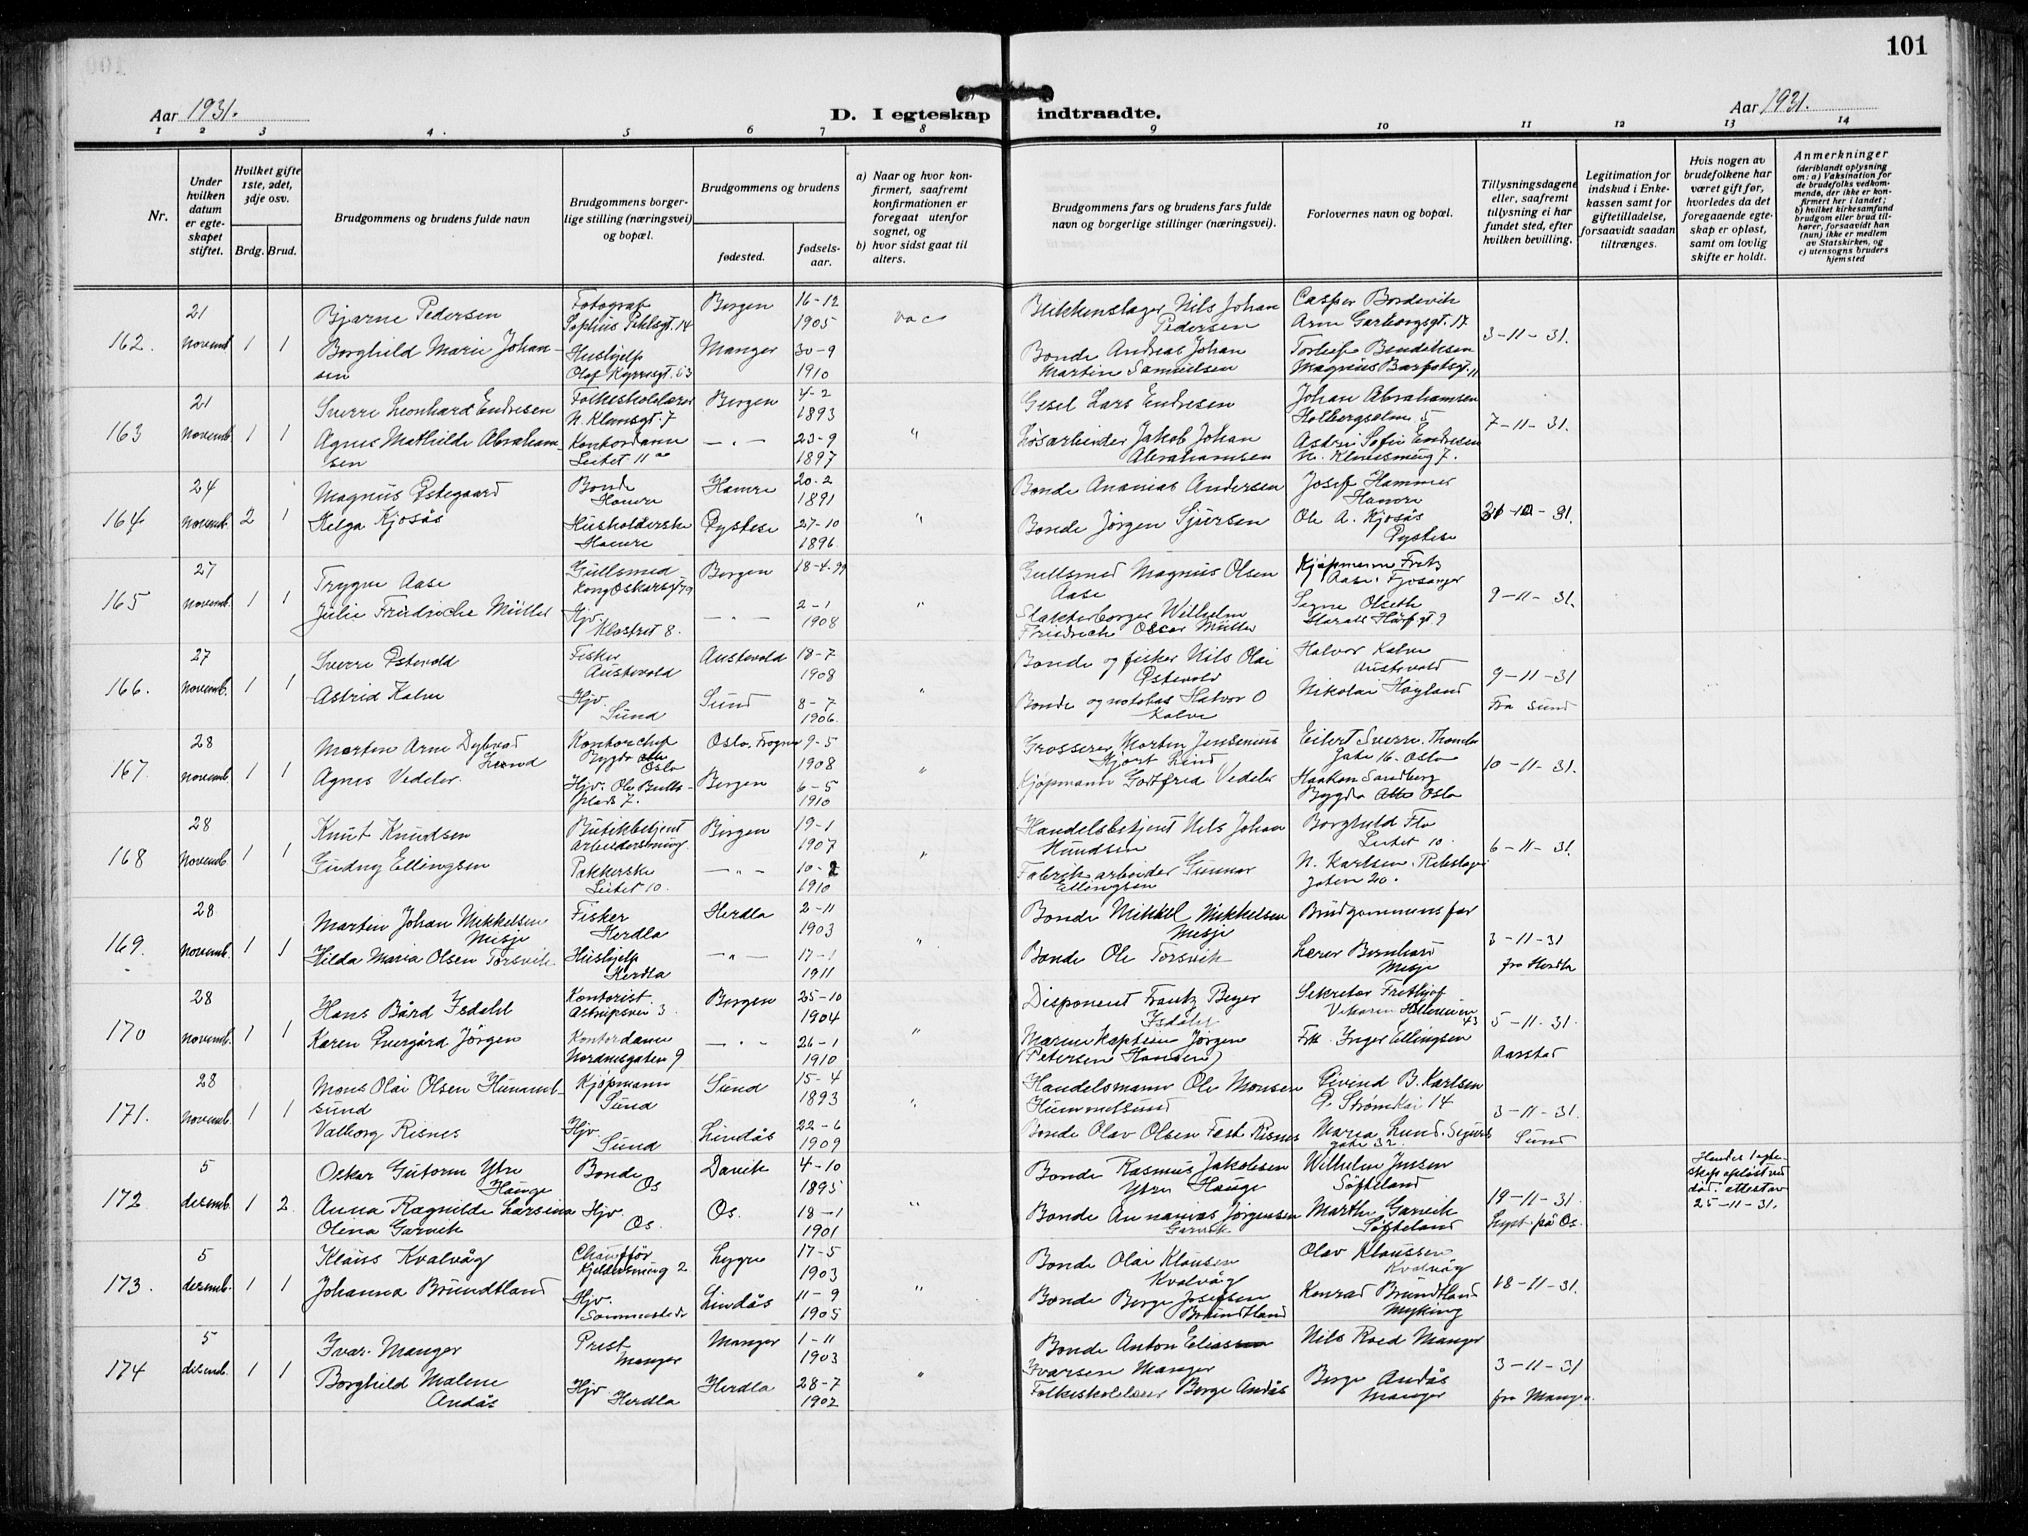 101
Aar 1931.
D. I egteskap indtraadte.
Aar 1931.
1 2 3 4. 5 6 7 8 9 10 11 12 13 14
Nr.
Under hvilken datum er egteskapet stiftet.
Hvilket gifte 1ste, 2det, 3dje osv.
Brdg. Brud.
Brudgommens og brudens fulde navn
Brudgommens borgerlige stilling (næringsvei) og bopæl.
Brudgommens og brudens
fødested.
fødselsaar.
a) Naar og hvor konfirmert, saafremt konfirmationen er foregaat utenfor sognet, og
b) hvor sidst gaat til alters.
Brudgommens fars og brudens fars fulde navn og borgerlige stillinger (næringsvei).
Forlovernes navn og bopæl.
Tillysningsdagene eller, saafremt tillysning ei har fundet sted, efter hvilken bevilling.
Legitimation for indskud i Enkekassen samt for giftetilladelse, forsaavidt saadan tiltrænges.
Hvis nogen av brudefolkene har været gift før, hvorledes da det foregaaende egteskap er opløst, samt om lovlig skifte er holdt.
Anmerkninger
(deriblandt oplysning om: a) Vaksination for de brudefolks vedkommende, der ikke er konfirmert her i landet; b) hvilket kirkesamfund brudgom eller brud tilhører, forsaavidt han (hun) ikke er medlem av Statskirken, og c) utensogns bruders hjemsted
162. 21 novemb 1 1
Bjarne Pedersen
Fotograf
Sophus Pihlsgt. 14
Bergen 16-12
1905
vac
Blikkenslager Nils Johan
Pedersen
Casper Bordevik
Arne Garborgsgt. 17
3-11-31.
Borghild Marie Johansen
Hushjelp
Olaf Kyrresgt. 63
Manger 30-9
1910
Bonde Andreas Johan
Martin Samuelsen
Torleif Bendiksen
Magnus Barfotsgt. 11
163 21 novemb. 1 1
Sverre Leonhard Endresen
Folkeskolelærer
N. Klamsgt. 7
Bergen 4-2
1893
"
Gesel Lars Endresen
Johan Abrahamsen
Holbergsalm. 5
7-11-31.
Agnes Mathilde Abrahamsen
Kontordame
Leitet 11
— " — 23-9
1897
Løsarbeider Jakob Johan
Abrahamsen
Astri Sofie Endresen
164 24 novemb. 2 1
Magnus Østegaard
Bonde
Hamre
Hamre 20-2
1891
"
Bonde Ananias Andersen
Josef Hammer
Hamre
Helga Kjosås
Husholderske
Hamre
Øystese 27-10
1896
Bonde Jørgen Sjursen
Ole A. Kjosås
Øystese
165 27 novemb. 1 1
Trygve Aase
Gullsmed
Kong Oskarsgt 79
Bergen 18-4-99
"
Gullsmed Magnus Olsen
Aase
Kjøpmann Fritz
Aase. Fjøsanger
9-11-31.
Julie Friedriche Müller
Hjv.
Klostret 8.
— " — 2-1
1908
Slakterborger Wilhelm
Friedrich Oscar Müller
Signe Olseth
Harald Hårf.gt 9
166. 27 novemb. 1 1
Sverre Østevold
Fisker
Austevold
Austevold 18-7
1908
"
Bonde og fisker Nils Olai
Østevold
Halvor Kalve
Austevold
9-11-31
Fra Sund
Astrid Kalve
Hjv.
Sund
Sund 8-7
1906.
Bonde og notebas Halvor O
Kalve
Nikolai Høyland
167. 28 novemb 1 1
Morten Arne Dybwad
Lund
Kontorchef
Bygdø
Oslo
Oslo, Frogner 9-5
1908
"
Grosserer Morten Jensenius
Hjort Lund
Eilert Sverre. Thomles
gate 16. Oslo
10-11-31.
Agnes Vedeler
Hjv. Ole Bulls
plads 7.
Bergen 6-5
1910
Kjøpmann Godtfred Vedeler
Haakon Sandberg
Bygdø Oslo
168 28 novemb. 1 1
Knut Knudsen
Butikkbetjent
Bergen 19-1
1907
"
Handelsbetjent Nils Johan
Knudsen
Borghild Flo
Leitet 10.
6-11-31.
Gudny Ellingsen
Pakkerske
Leitet 10.
— " — 10-2
1910
Fabrikarbeider Gunnar
Ellingsen
N. Karlsen. Rebslagergaten 20.
169. 28 novemb. 1 1
Martin Johan Mikkelsen
Misje
Fisker
Herdla
Herdla 2-11
1903
"
Bonde Mikkel Mikkelsen
Misje
Brudgommens far
3-11-31
fra Herdla
Hilda Maria Olsen Torsvik
Hushjelp
Herdla
— " — 17-1
1911
Bonde Ole Torsvik
Lærer Bernhard
Misje
170 28 novemb. 1 1
Hans Bård Isdahl
Kontorist
Astrupsvei 3
Bergen 25-10
1904
"
Disponent Frantz Beyer
Isdahl
Sekretær Fritthjof
5-11-31.
Aarstad
Karen Øvergård Jörgen
Kontordame
Nordnesgaten 9
— " — 26-1
1910
Marinekaptein Jørgen
(Petersen Hansen)
Frk. Inger Ellingsen
171. 28 novemb. 1 1
Mons Olai Olsen Hummelsund
Kjøpmann
Sund
Sund 15-4
1893
"
Handelsmann Ole Monsen
Hummelsund
Eivind B. Karlsen
D. Strømkai 14
3-11-31.
Sund
Valborg Risnes
Hjv.
Sund
Lindås 22-6
1909
Bonde Olav Olsen Feste Risnes
Maria Lund. Sigurds
gate 32.
172 5 desemb. 1 2
Oskar Gutorm Ytre
Hauge
Bonde
Os
Davik 4-10
1895
"
Bonde Rasmus Jakobsen
Ytre Hauge
Wilhelm Jensen
Søfteland
19-11-31.
Lyst på Os.
Hendes 1 egteskap opløst ved
død. attest av
25-11-31.
Anna Ragnilde Larsine
Olina Garvik
Hjv.
Os.
Os. 18-1
1901
Bonde Annanias Jørgensen
Garvik
Marthe Garvik
Søfteland
173. 5 desemb. 1 1
Klaus Kvalvåg
Chauffør
Kjellersmug 2
Lygre 17-5
1903
"
Bonde Olai Klausen
Kvalvåg
Olav Klaussen
Kvalvåg
18-11-31.
Johanna Brundtland
Hjv.
Sammesteds
Lindås 11-9
1905
Bonde Berge Josefsen
Brundtland
Konrad Brundtland
Myking
174 5 desemb. 1 1
Ivar Manger
Prest
Manger
Manger 1-11
1903
"
Bonde Anton Eliassen
Ivarsen Manger
Nils Roed Manger
3-11-31
fra Manger.
Borghild Malene
Andås
Hjv.
Herdla
Herdla 28-7
1902
Folkeskolelærer Berge Andås
Berge Andås
Manger